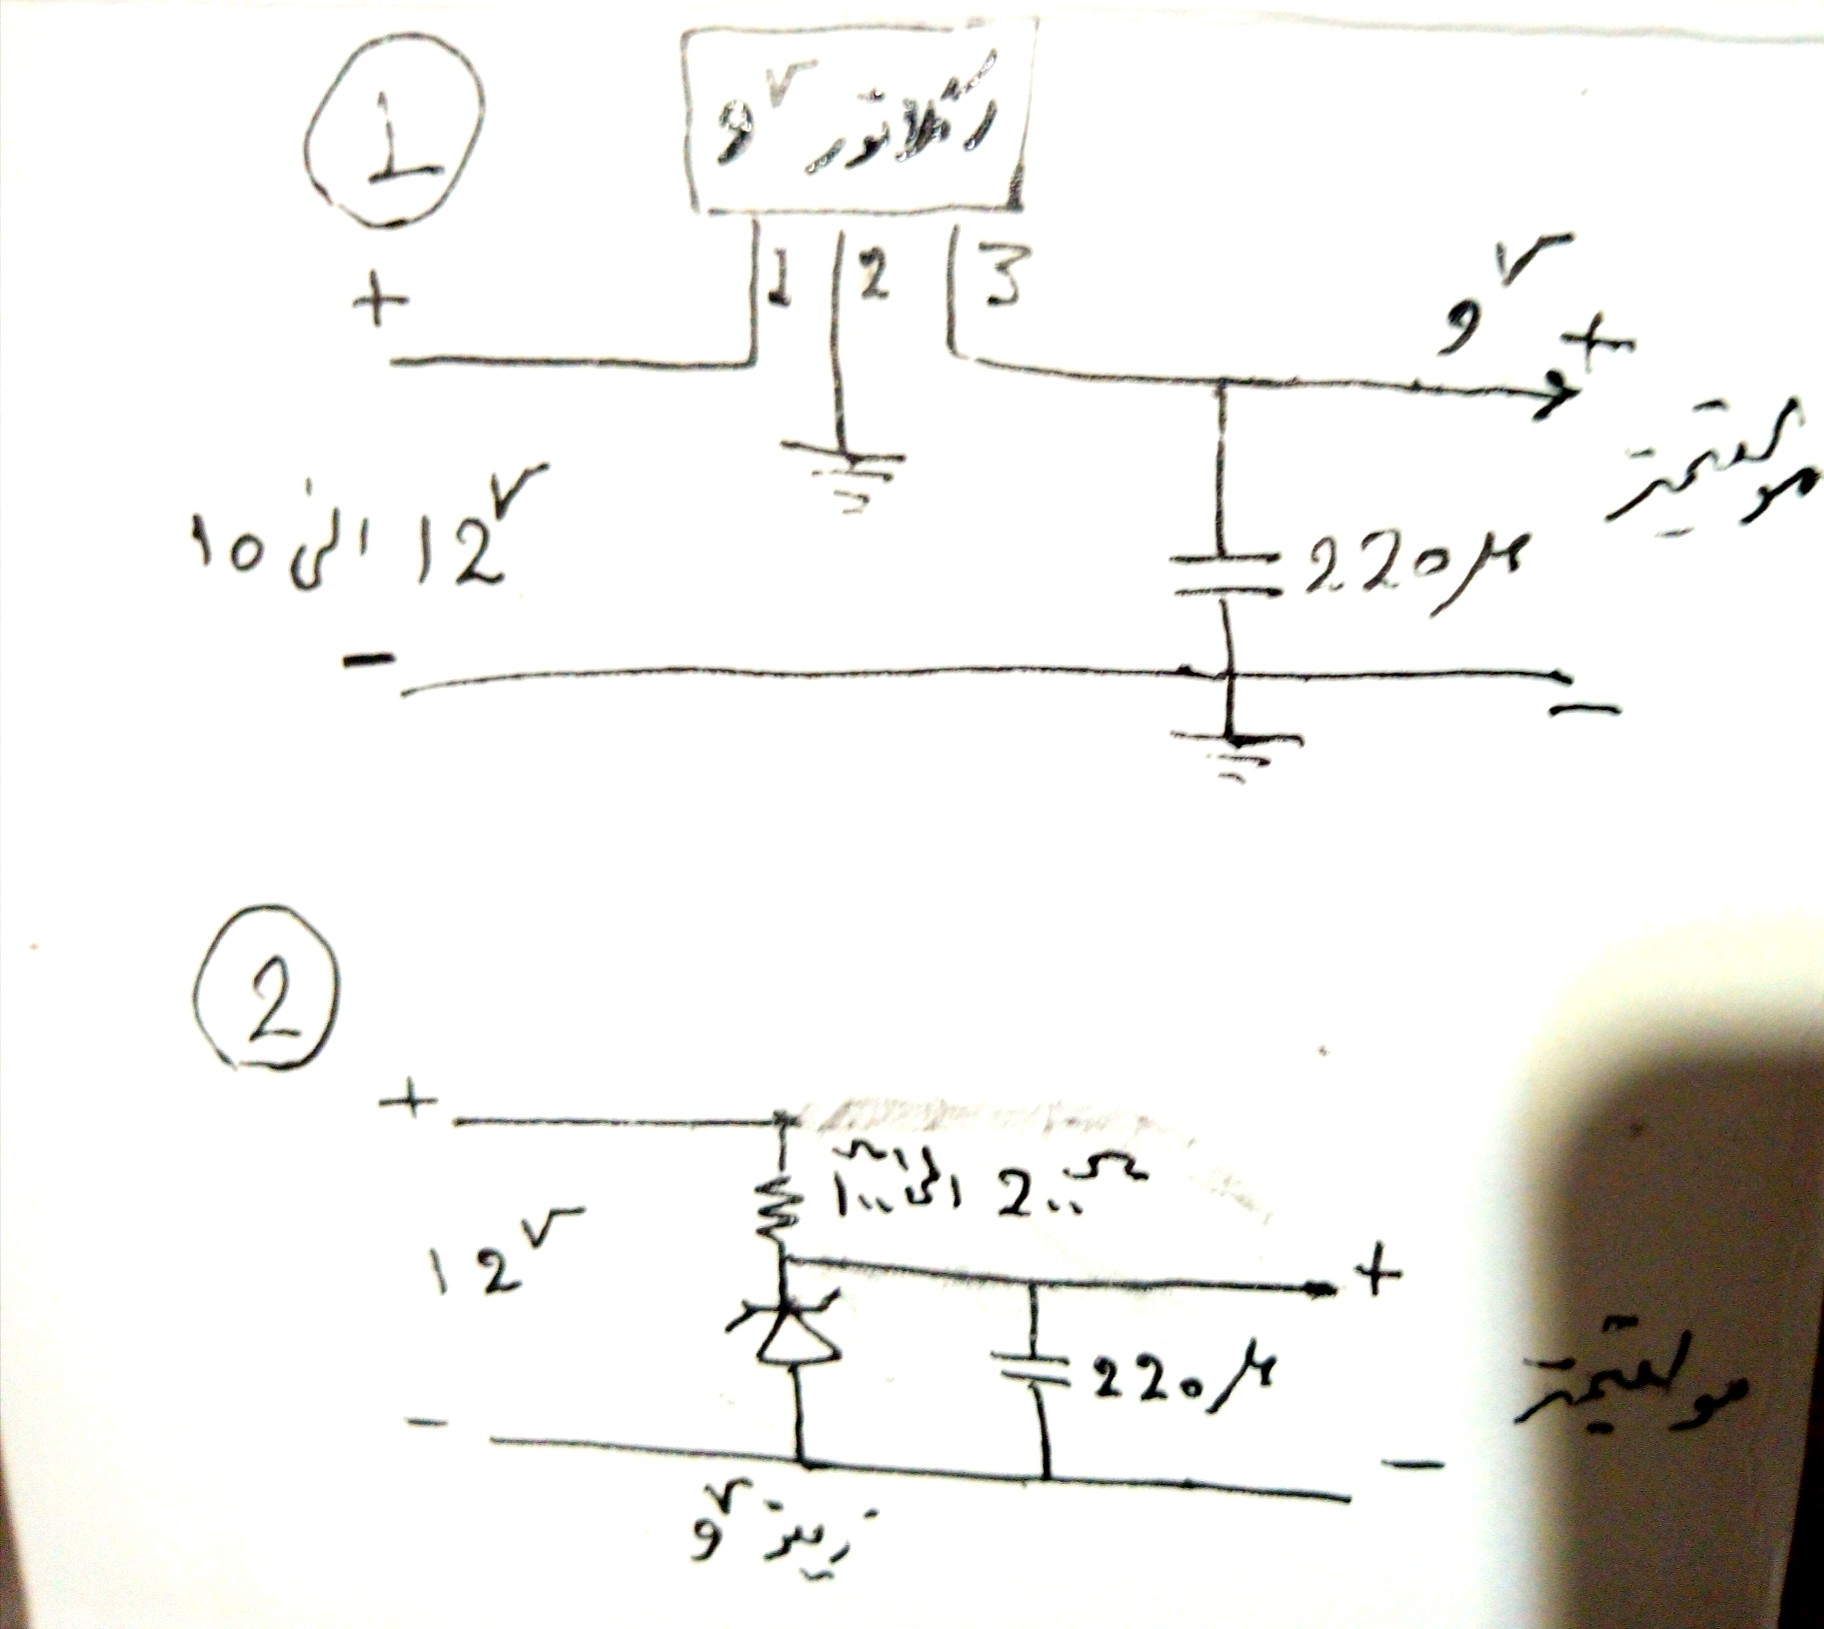 1
رگلاتور 9V
+
1 2 3
9V
+
مولتیمتر
10 الی 12V
220µ
-
-
2
+
100Ω الی 200Ω
12V
+
220µ
مولتیمتر
-
-
زینر 9V